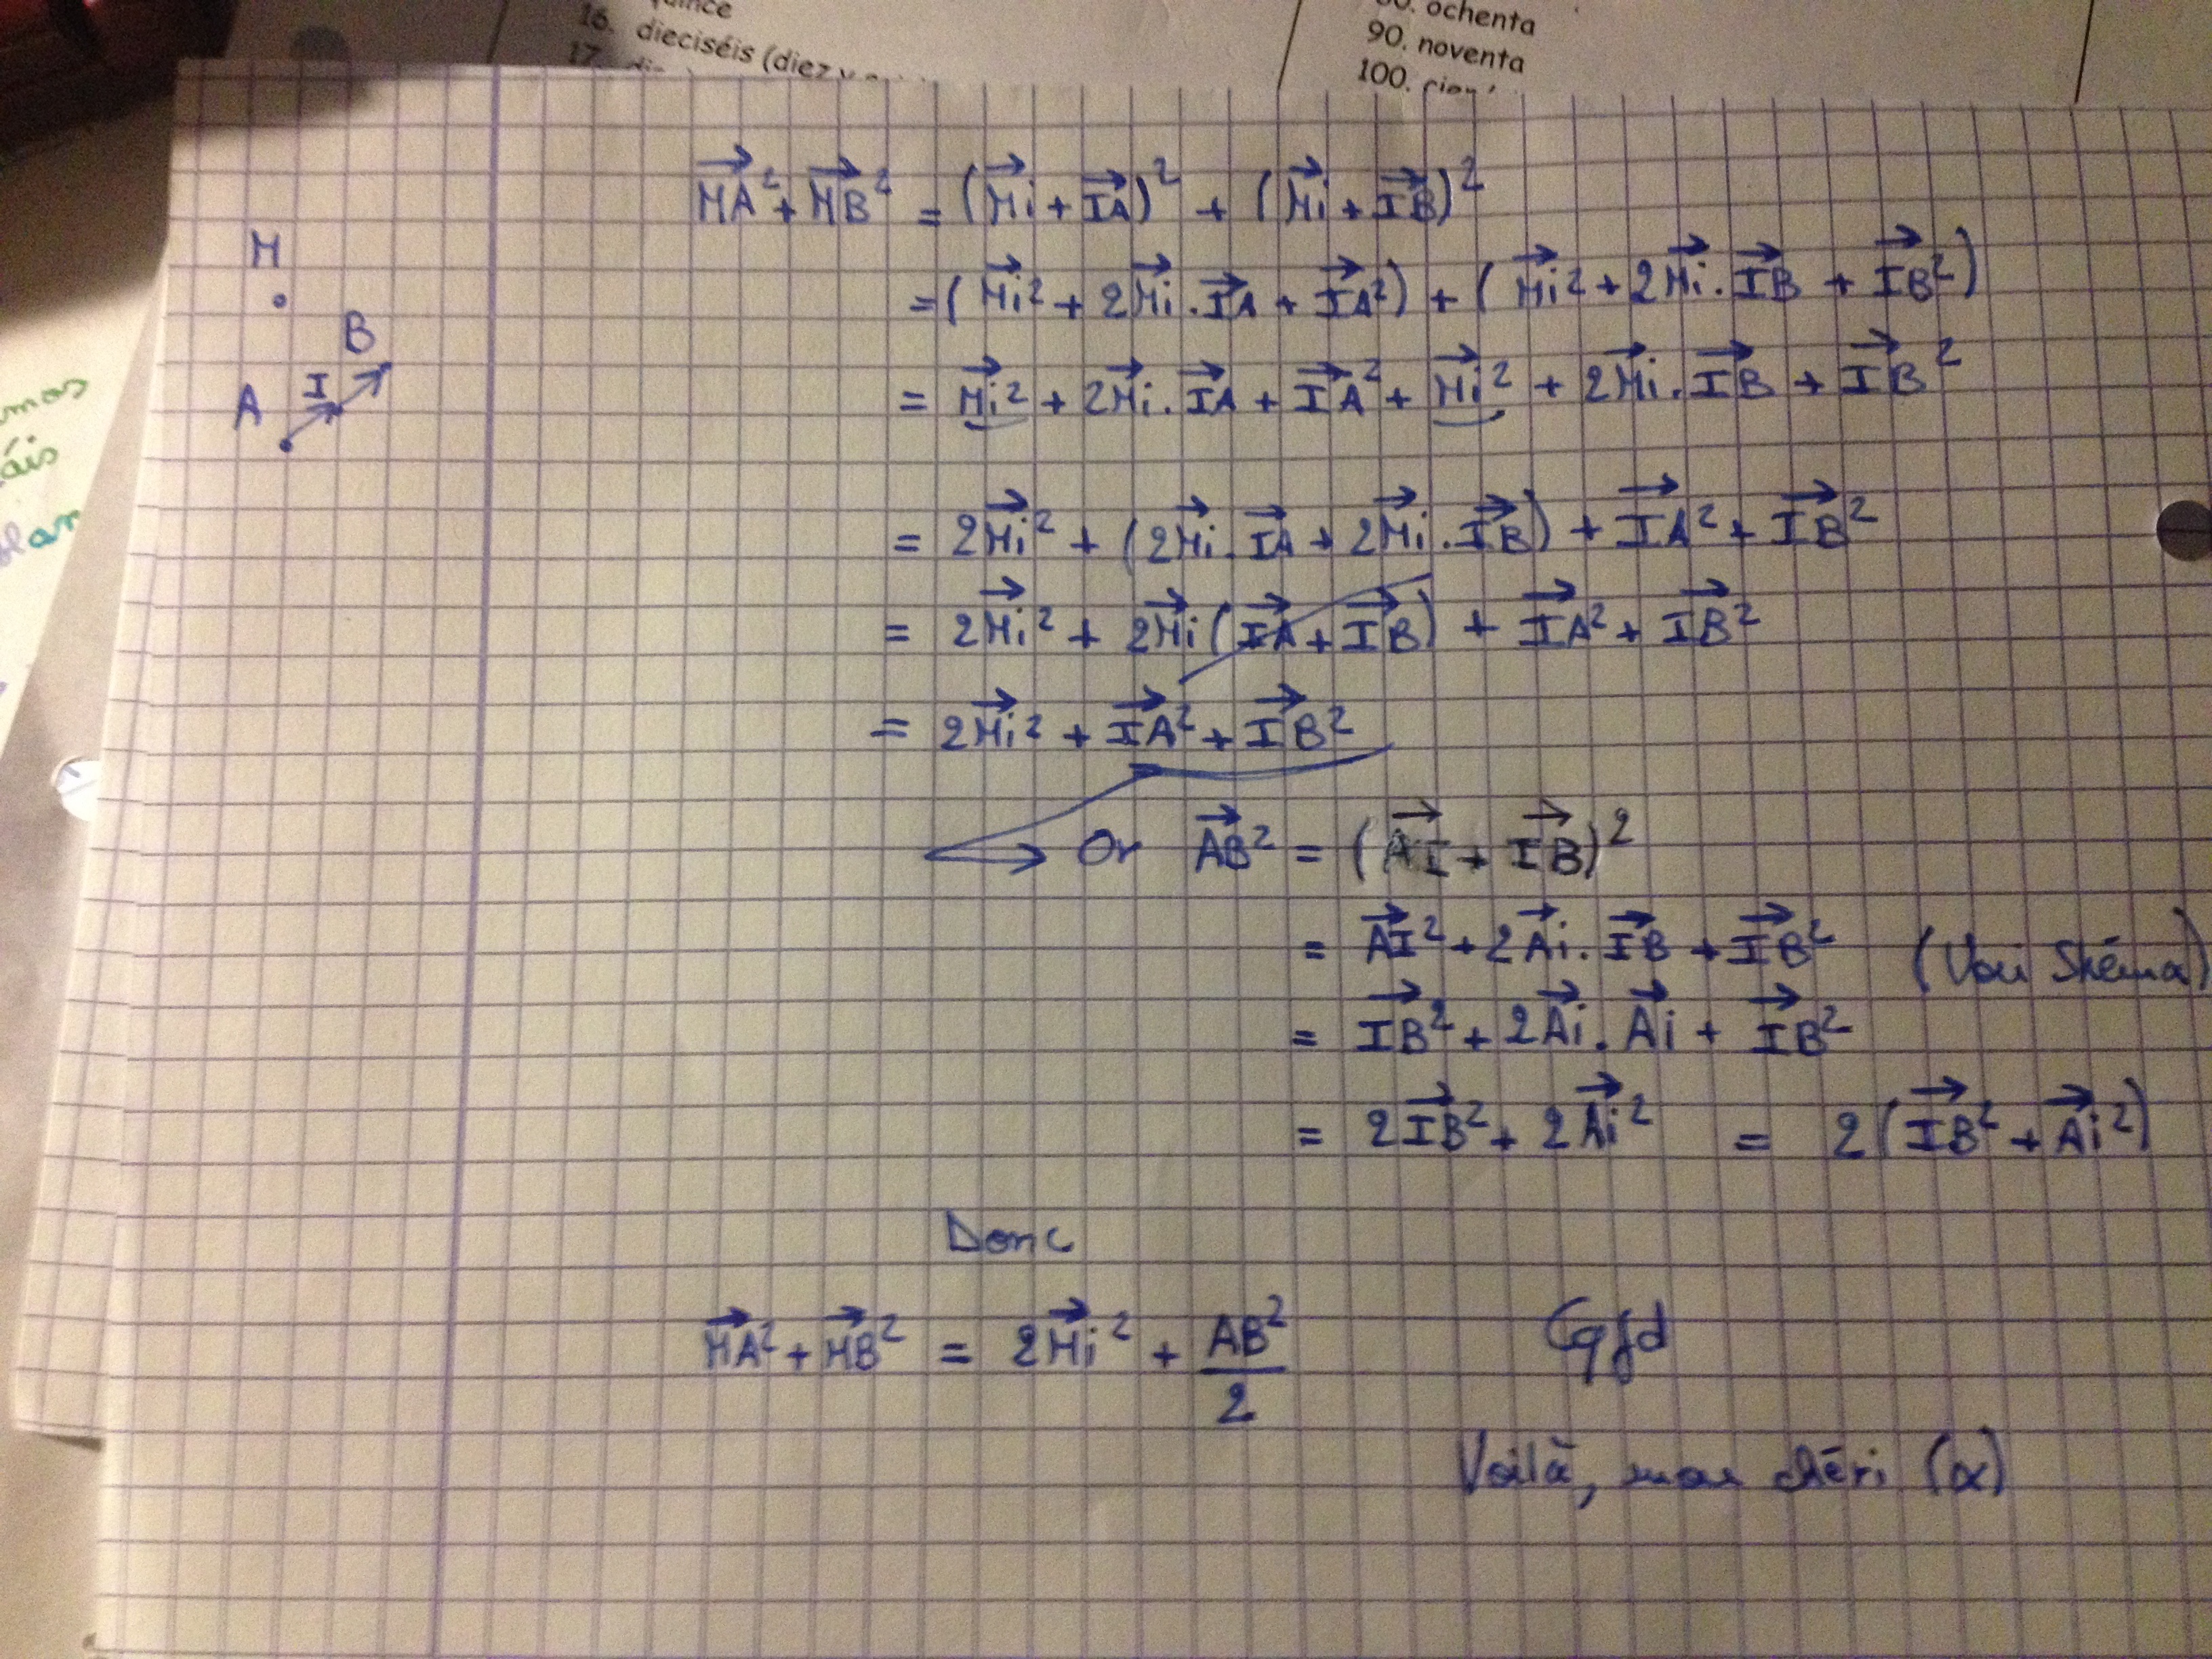 quince
16. dieciséis (diez y
17.
80. ochenta
90. noventa
100.
mos
áis
an
M
B
I
A
MA² + MB² = (Mi + IA)² + (Mi + IB)²
= (Mi² + 2Mi . IA + IA²) + (Mi² + 2Mi . IB + IB²)
= Mi² + 2Mi . IA + IA² + Mi² + 2Mi . IB + IB²
= 2Mi² + (2Mi . IA + 2Mi . IB) + IA² + IB²
= 2Mi² + 2Mi (IA + IB) + IA² + IB²
= 2Mi² + IA² + IB²
→ Or AB² = (AI + IB)²
= AI² + 2Ai . IB + IB² (Voir Shéma)
= IB² + 2Ai . Ai + IB²
= 2IB² + 2Ai² = 2(IB² + Ai²)
Donc
MA² + MB² = 2Mi² + AB²/2 Cqfd
Voilà, mon chéri (α)